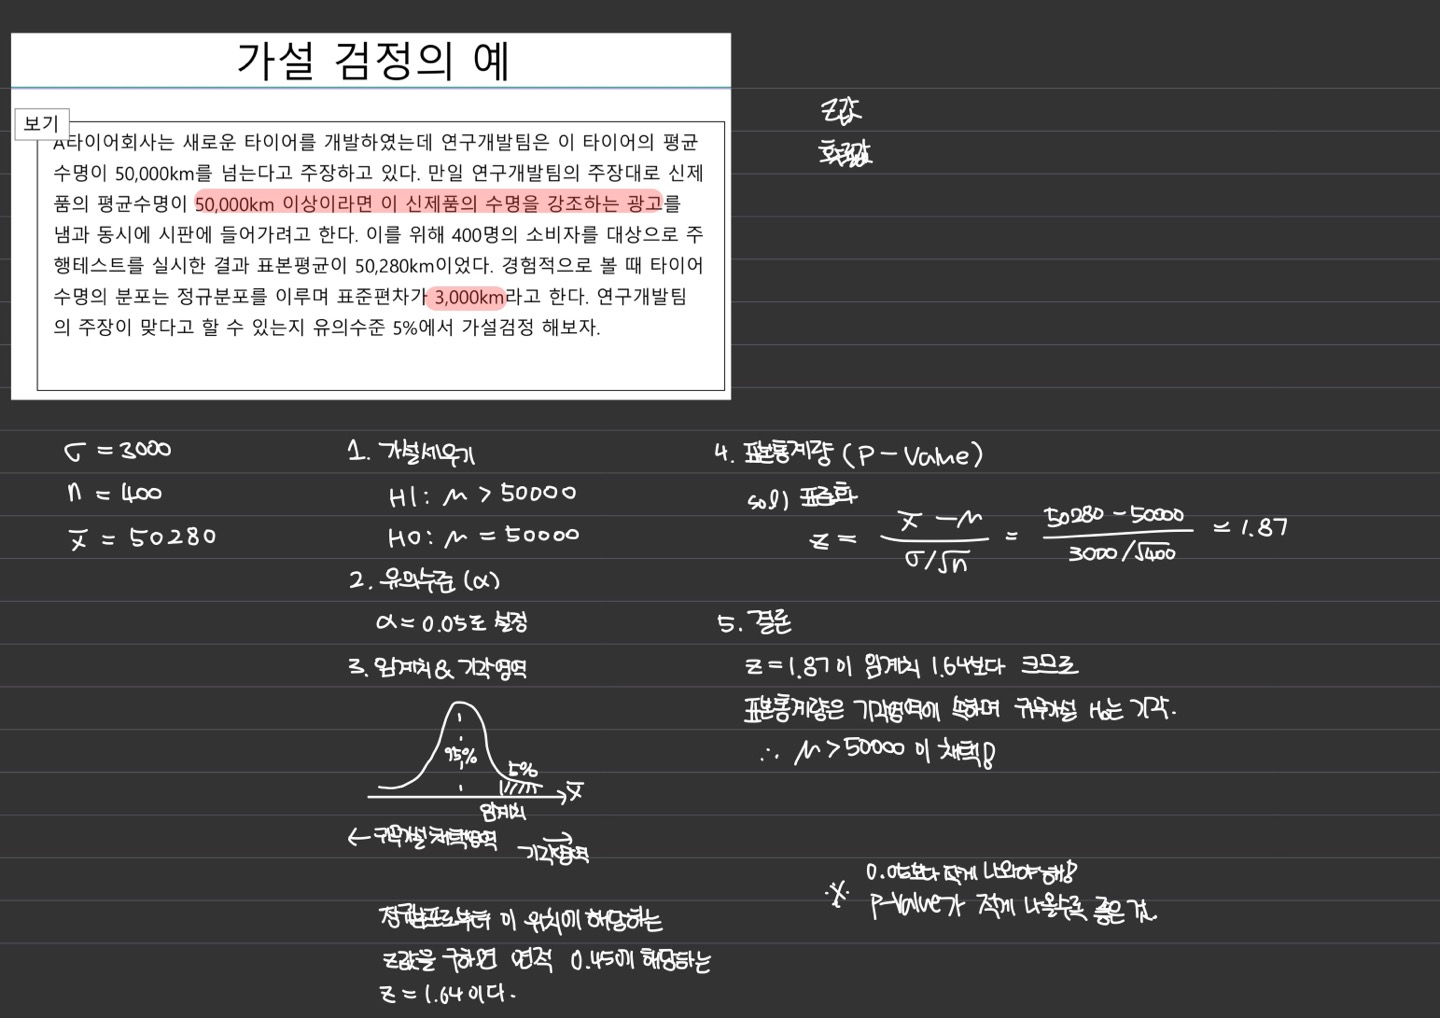 가설 검정의 예
보기
A타이어회사는 새로운 타이어를 개발하였는데 연구개발팀은 이 타이어의 평균
수명이 50,000km를 넘는다고 주장하고 있다. 만일 연구개발팀의 주장대로 신제
품의 평균수명이 50,000km 이상이라면 이 신제품의 수명을 강조하는 광고를
냄과 동시에 시판에 들어가려고 한다. 이를 위해 400명의 소비자를 대상으로 주
행테스트를 실시한 결과 표본평균이 50,280km이었다. 경험적으로 볼 때 타이어
수명의 분포는 정규분포를 이루며 표준편차가 3,000km라고 한다. 연구개발팀
의 주장이 맞다고 할 수 있는지 유의수준 5%에서 가설검정 해보자.
Z값
확률값
σ = 3000
n = 400
x̄ = 50280
1. 가설세우기
H1: μ > 50000
H0: μ = 50000
2. 유의수준 (α)
α = 0.05로 설정
3. 임계치 & 기각영역
95%
5%
x̄
임계치
← 귀무가설 채택영역
→ 기각영역
정규분포로부터 이 위치에 해당하는
Z값을 구하면 면적 0.45에 해당하는
Z = 1.64 이다.
4. 표본통계량 (P-Value)
sol) 표준화
z = (x̄ - μ) / (σ/√n) = (50280 - 50000) / (3000/√400) = 1.87
5. 결론
z = 1.87이 임계치 1.64보다 크므로
표본통계량은 기각영역에 속하며 귀무가설 H₀는 기각.
∴ μ > 50000 이 채택용
※ 0.05보다 작게 나와야 해용
P-Value가 작게 나올수록 좋은 것.